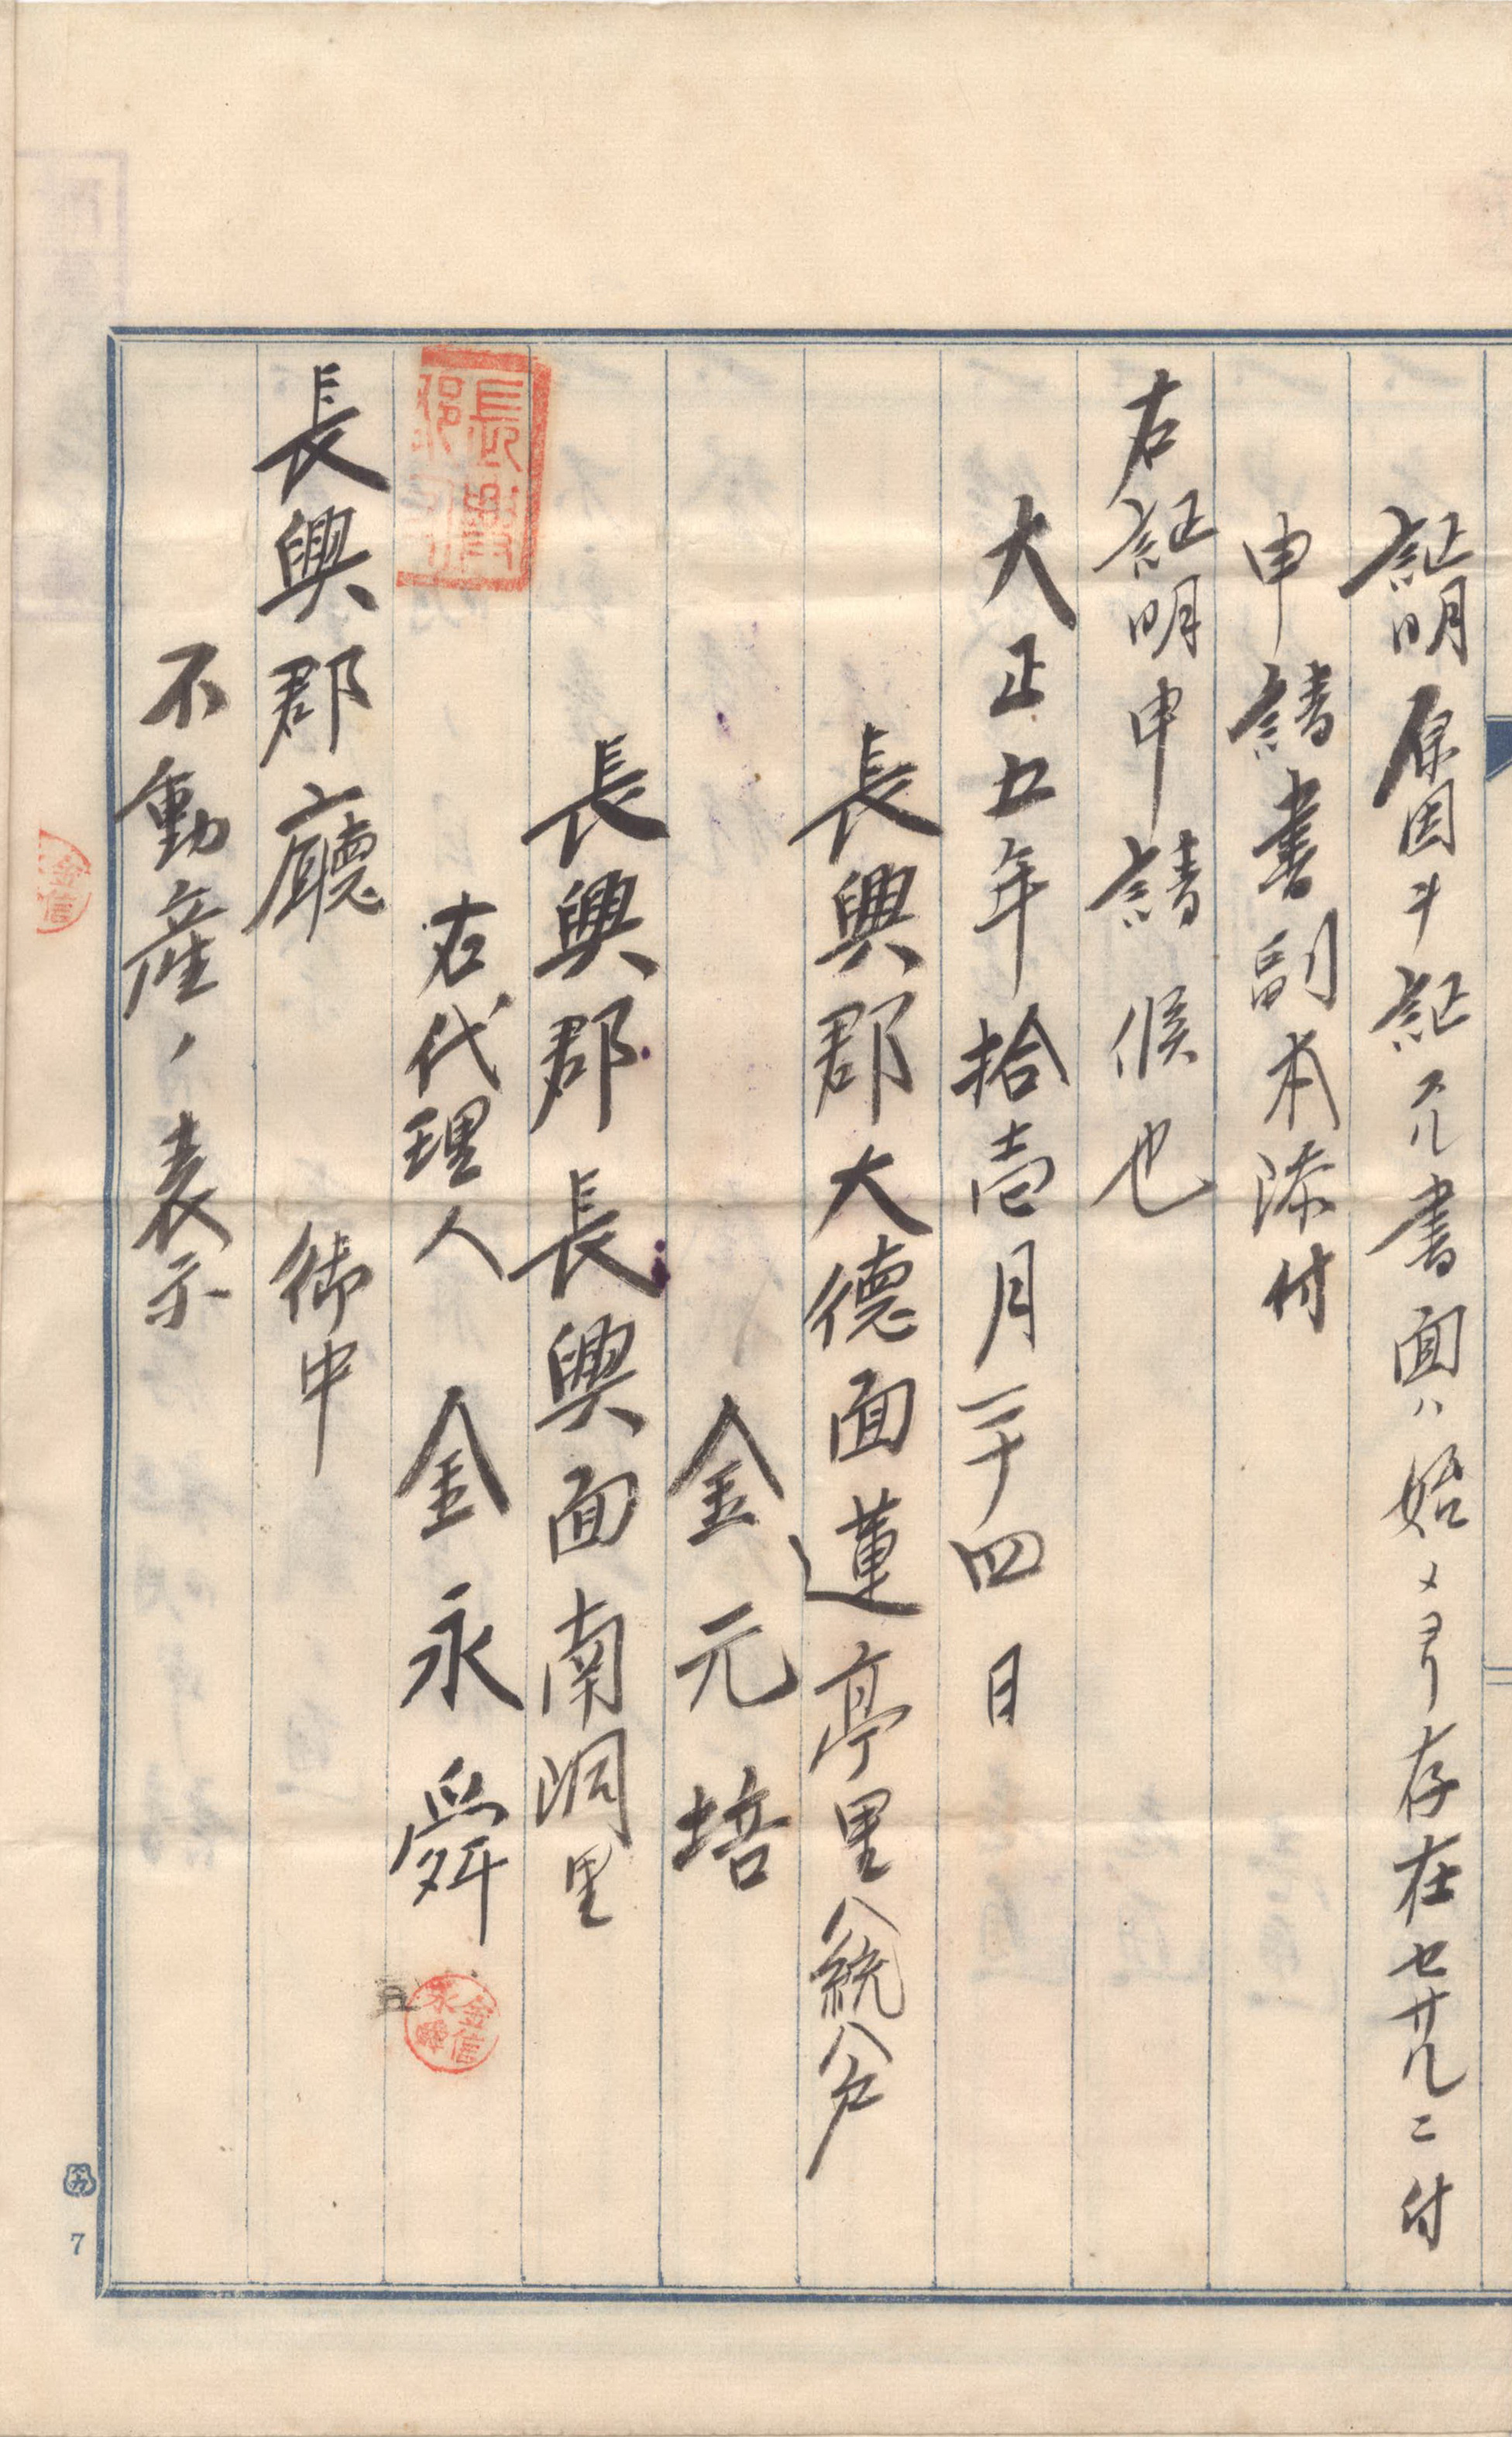 証明原因ヲ証スル書面ハ始メヨリ存在セサルニ付
申請書副本添付
右証明申請候也
大正五年拾壱月二十四日
長興郡大德面蓮亭里八統八戶
金元培
長興郡長興面南洞里
右代理人 金永舜
長興郡廳 御中
不動産ノ表示
7